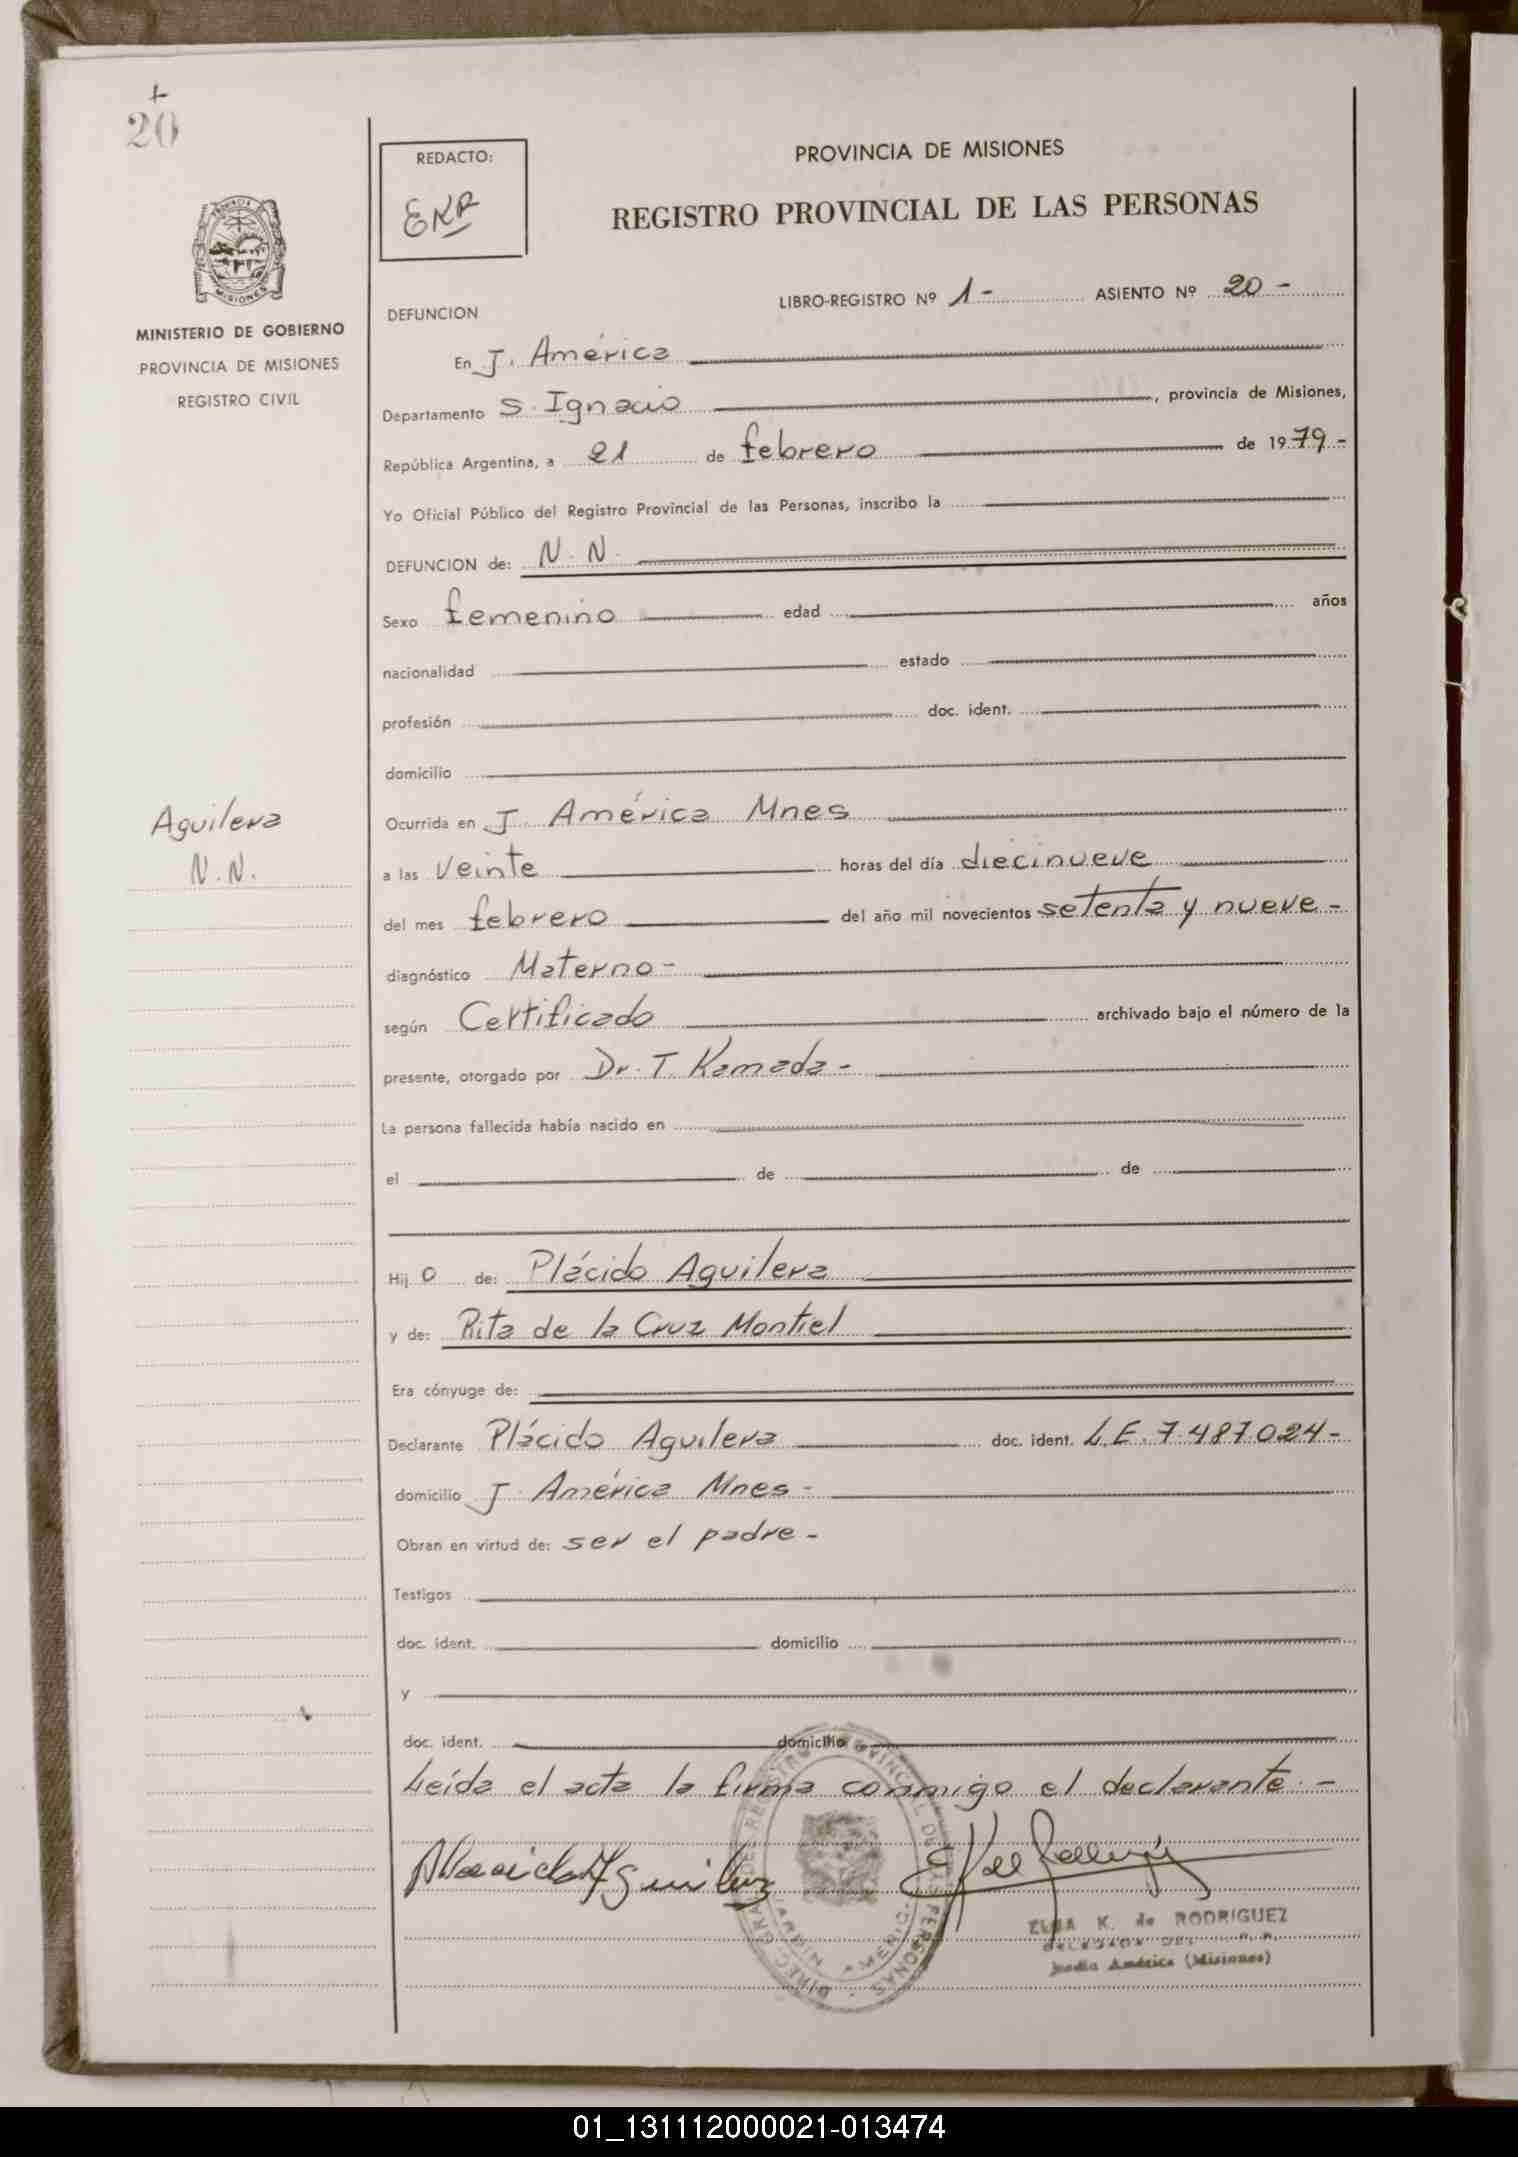 20
REDACTO:
EKR
PROVINCIA DE MISIONES
REGISTRO PROVINCIAL DE LAS PERSONAS
MISIONES
MINISTERIO DE GOBIERNO
PROVINCIA DE MISIONES
REGISTRO CIVIL
LIBRO-REGISTRO Nº 1 - ASIENTO Nº 20 -
DEFUNCION
En J. América
Departamento S. Ignacio, provincia de Misiones,
República Argentina, a 21 de febrero de 1979 -
Yo Oficial Público del Registro Provincial de las Personas, inscribo la
DEFUNCION de: N. N.
Sexo femenino edad años
nacionalidad estado
profesión doc. ident.
domicilio
Aguilera
N. N.
Ocurrida en J. América Mnes
a las veinte horas del día diecinueve
del mes febrero del año mil novecientos setenta y nueve -
diagnóstico Materno -
según Certificado archivado bajo el número de la
presente, otorgado por Dr. T. Kamada -
La persona fallecida había nacido en
el de de
Hij o de: Plácido Aguilera
y de: Rita de la Cruz Montiel
Era cónyuge de:
Declarante Plácido Aguilera doc. ident. L.E. 7.487.024 -
domicilio J. América Mnes -
Obran en virtud de: ser el padre -
Testigos
doc. ident. domicilio
y
doc. ident. domicilio
Leída el acta la firma conmigo el declarante. -
ELBA K. de RODRIGUEZ
Jardín América (Misiones)
01_131112000021-013474